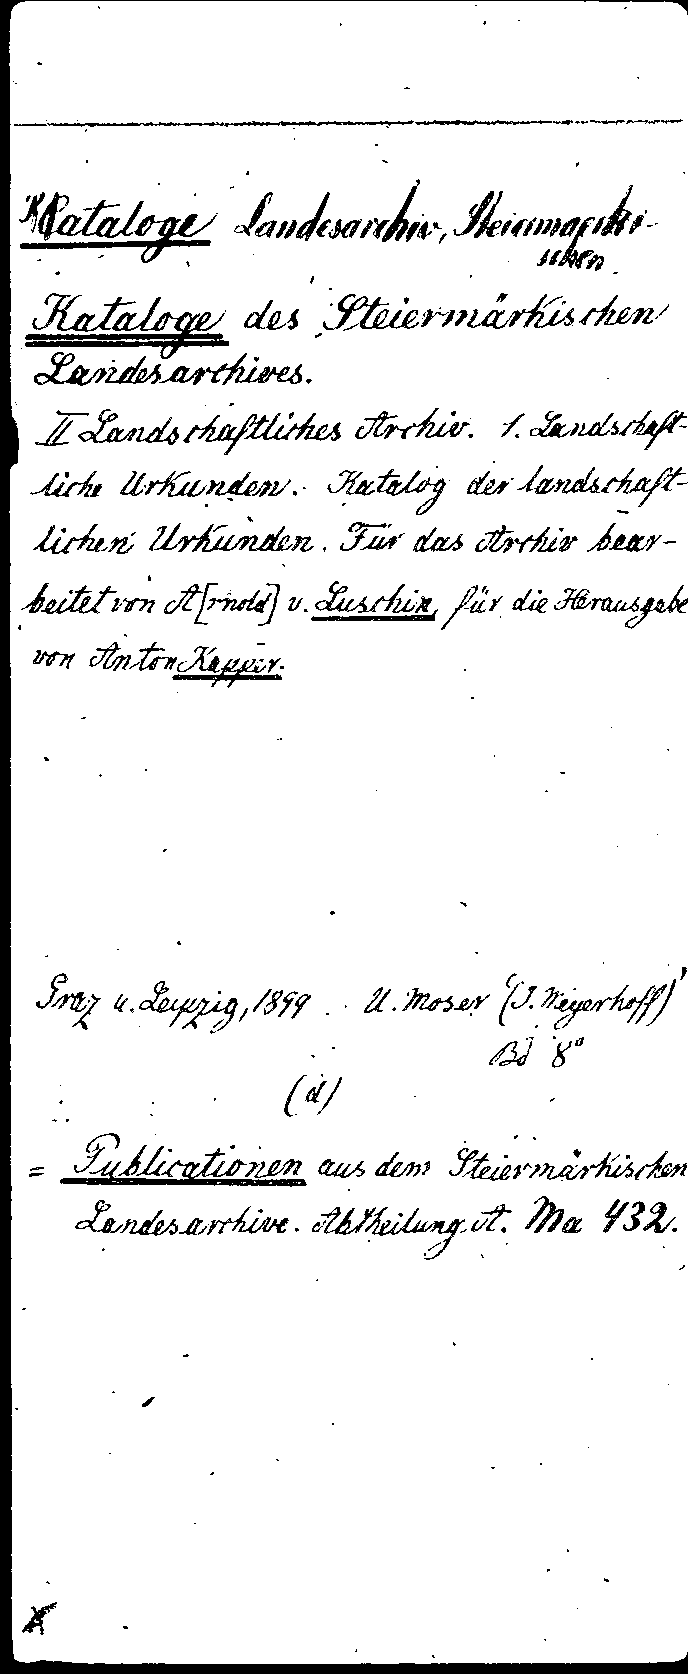 Kataloge Landesarchiv, Steiermärki-
schen
Kataloge des Steiermärkischen
Landesarchives.
II Landschaftliches Archiv. 1. Landschaft-
liche Urkunden. Katalog der landschaft-
lichen Urkunden. Für das Archiv bear-
beitet von A[rnold] v. Luschin, für die Herausgabe
von Anton Kapper.
Graz u. Leipzig, 1899 U. Moser (J. Meyerhoff)
Bd 8°
(d)
= Publicationen aus dem Steiermärkischen
Landesarchive. Abtheilung A. Ma 432.